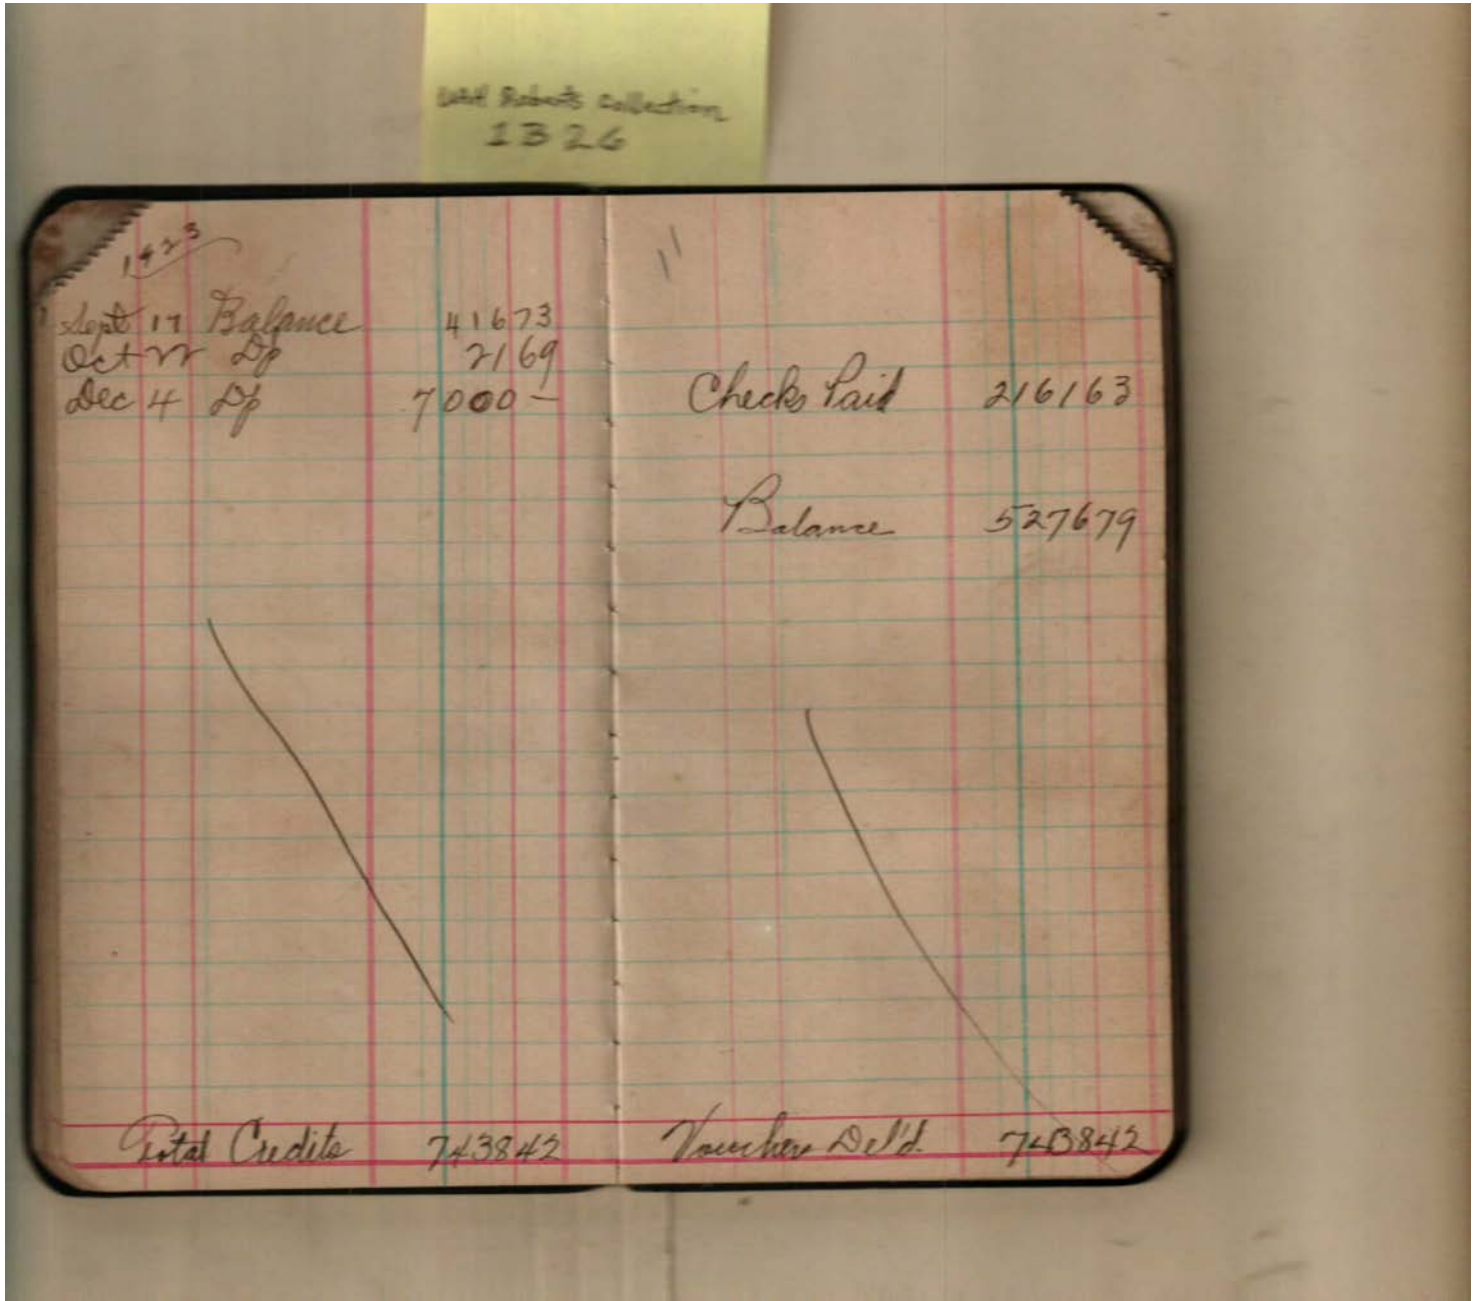 Roberts collection
1B26
1423
Sept 17 Balance 41673
Oct 22 Dp 2169
Dec 4 Dp 7000 —
Total Credits 743842
11
Checks Paid 216163
Balance 527679
Vouchers Del'd. 743842